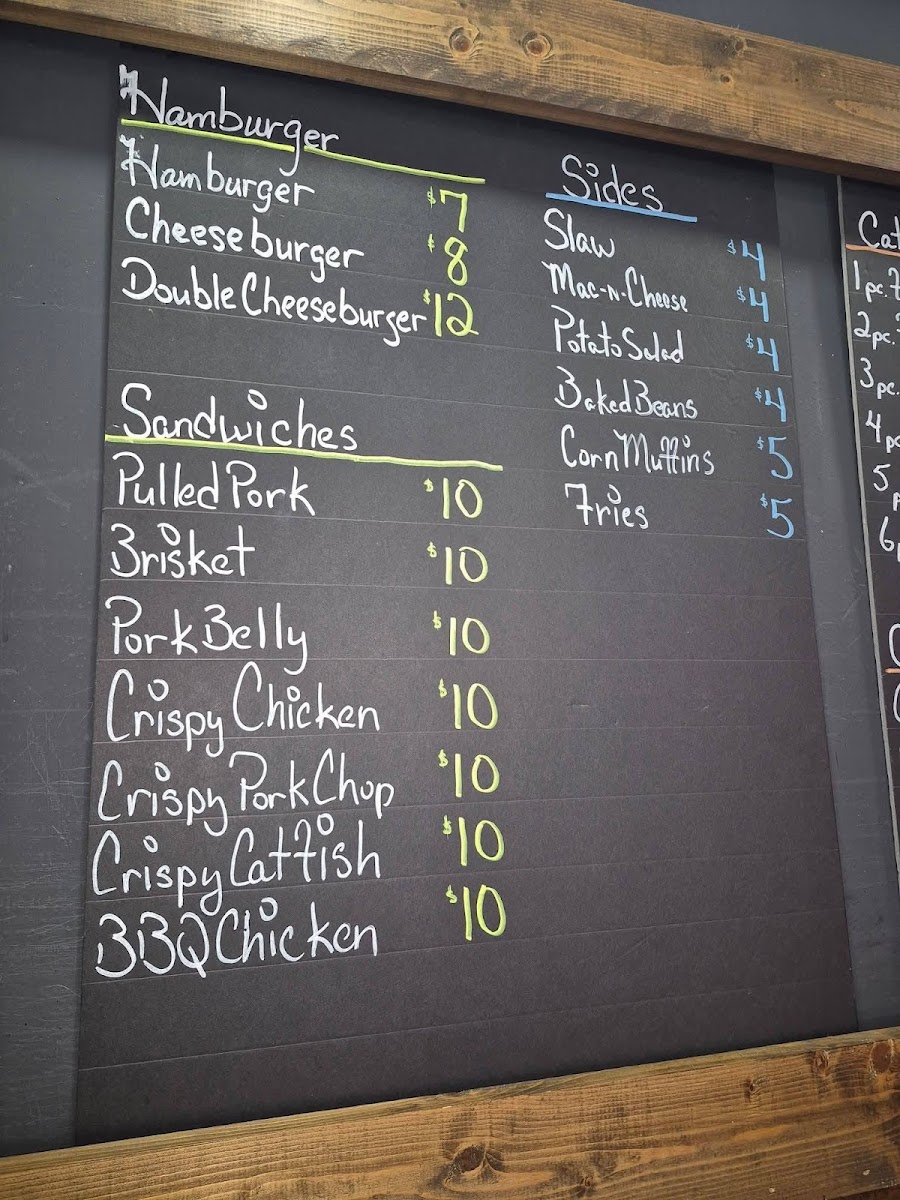 Hamburger
Hamburger $7
Cheeseburger $8
Double Cheeseburger $12
Sandwiches
Pulled Pork $10
Brisket $10
Pork Belly $10
Crispy Chicken $10
Crispy Pork Chop $10
Crispy Catfish $10
BBQ Chicken $10
Sides
Slaw $4
Mac-N-Cheese $4
Potato Salad $4
Baked Beans $4
Corn Muffins $5
Fries $5
1 pc.
2 pc.
3 pc.
4
5
6